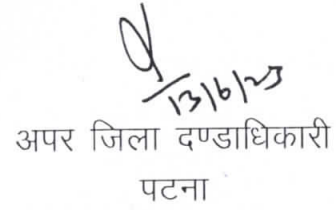 13/6/23
अपर जिला दण्डाधिकारी
पटना